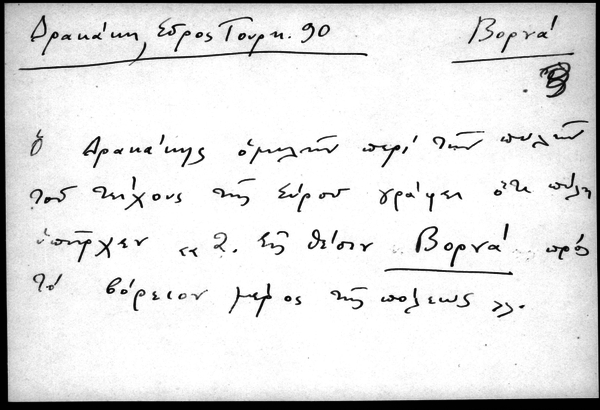 Δρακάκη, Σύρος Τουρκ. 90
Βορνά
ὁ Δρακάκης ὁμιλῶν περί τῶν πυλῶν
τοῦ τείχους τῆς Σύρου γράφει ὅτι πύλη
ὑπῆρχεν « 2. Εἰς θέσιν Βορνά πρός
τό βόρειον μέρος τῆς πόλεως ».